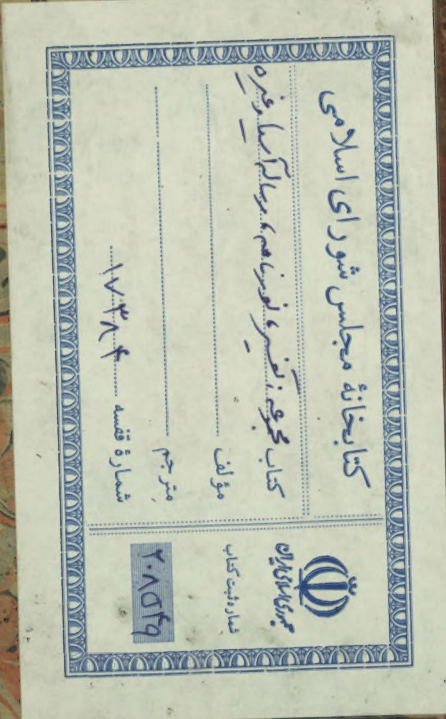 کتابخانهٔ مجلس شورای اسلامی
کتاب مجموعه: تعبیر، نورنامه، رساله آسیا و غیره
مؤلف
مترجم
شمارهٔ قفسه ۱۷۳۸۴
جمهوری اسلامی ایران
شماره ثبت کتاب
۲۰۸۵۴۹